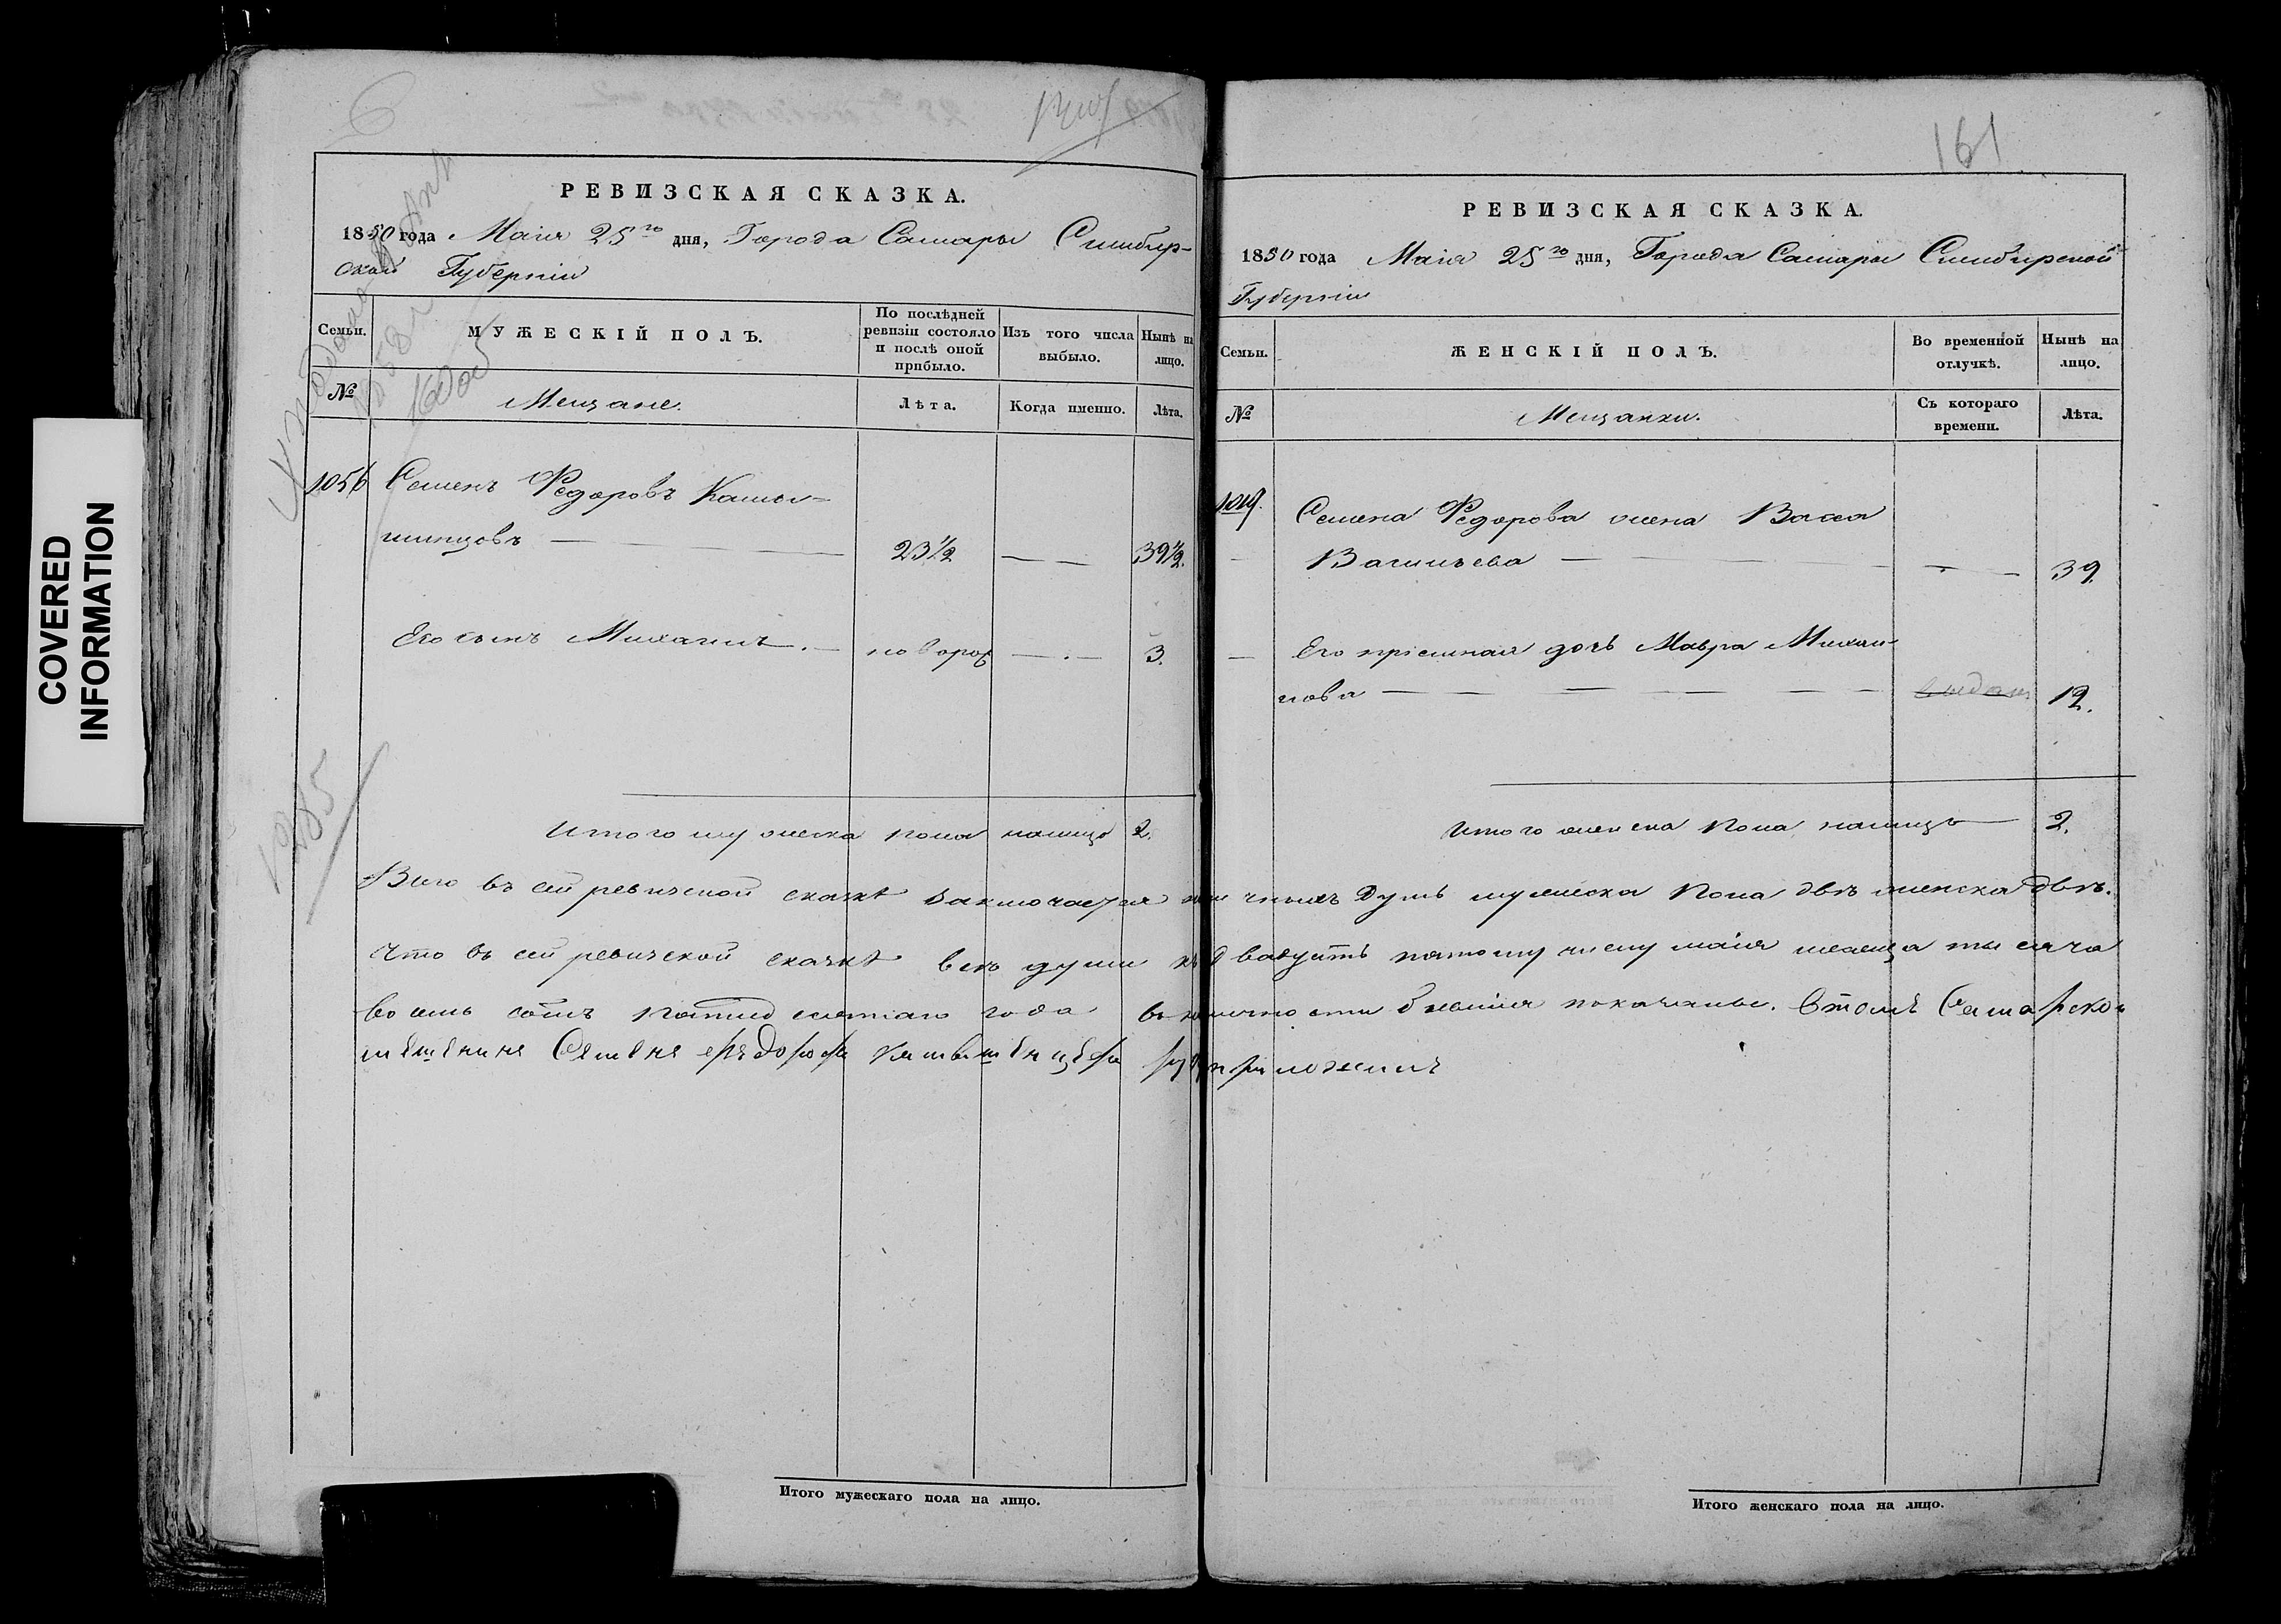 161
РЕВИЗСКАЯ СКАЗКА.
1850 года Маія 25го дня, Города Самары Симбир-
ской Губерніи
Семьи.
МУЖЕСКІЙ ПОЛЪ.
По послѣдней ревизіи состояло и послѣ оной прибыло.
Изъ того числа выбыло.
Нынѣ на лицо.
№
Мещане.
Лѣта.
Когда именно.
Лѣта.
1056 Семенъ Федоровъ Камы-
шинцовъ — 23½ — — 39½.
Его сынъ Михаилъ. — новорож — . — 3.
1285
Итого мужеска пола налицо 2.
РЕВИЗСКАЯ СКАЗКА.
1850 года Маія 25го дня, Города Самары Симбирской
Губерніи
Семьи.
ЖЕНСКІЙ ПОЛЪ.
Во временной отлучкѣ.
Нынѣ на лицо.
№
Мещанки.
Съ котораго времени.
Лѣта.
Семена Федорова жена Васса
Васильева — — — 39.
Его пріемная дочь Мавра Михаи-
лова — — — — — 12.
Итого женска пола налицо — 2.
Всего въ сей ревизской сказкѣ заключается наличныхъ душъ мужеска пола двѣ женска двѣ.
Что въ сей ревизской сказкѣ всѣ души къ двадцать пятому числу маія месяца тысяча
восемь сотъ пятидесятаго года въ наличности бывшія показаны. Втомъ Самарско
мешенинъ Семенъ руку приложилъ
Итого мужескаго пола на лицо.
Итого женскаго пола на лицо.
COVERED
INFORMATION